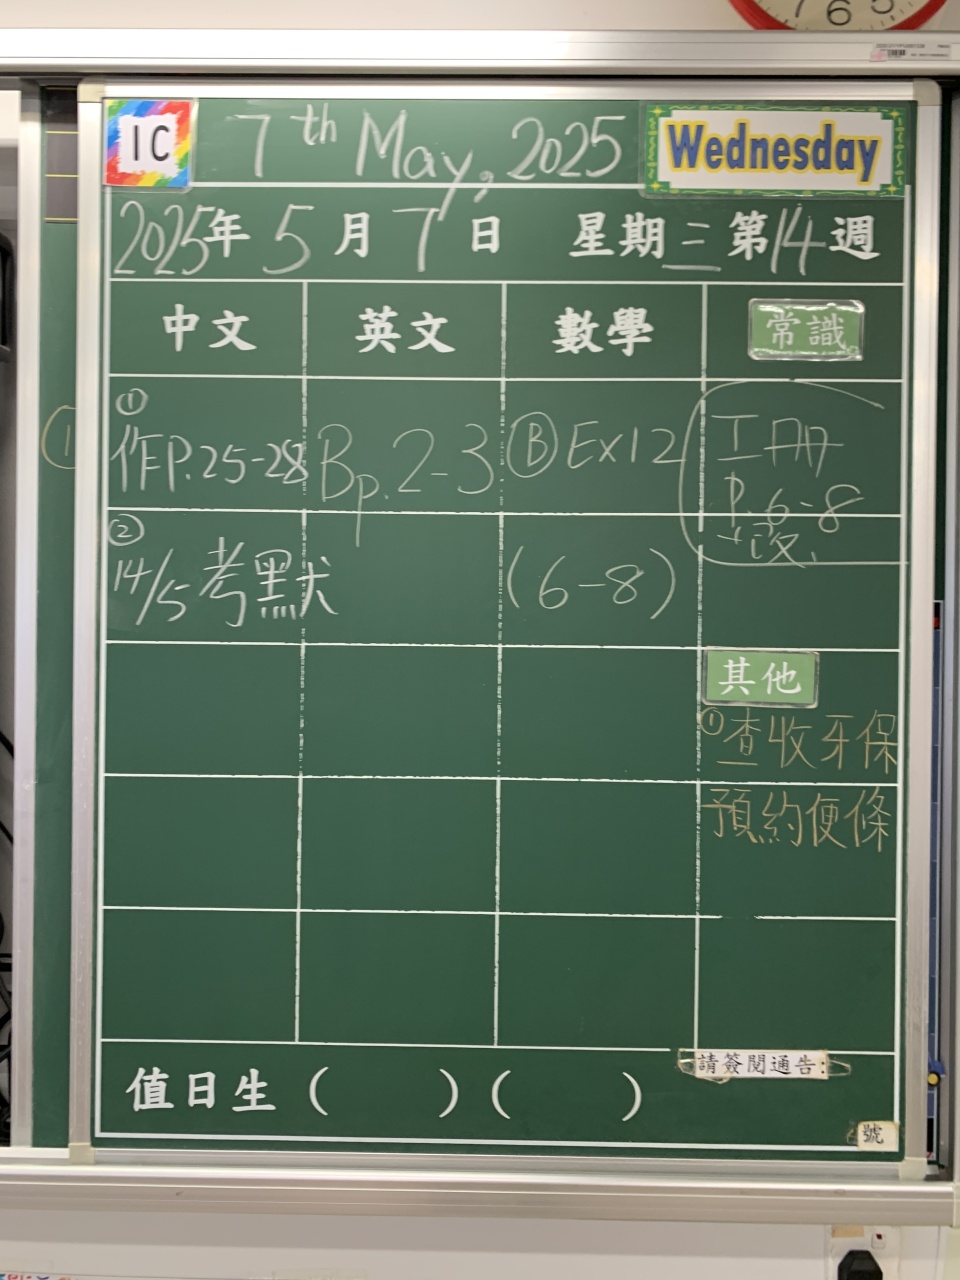 1C
7th May, 2025
Wednesday
2025年5月7日 星期三第14週
中文 英文 數學 常識
①
作P.25-28
Bp.2-3
Ⓑ Ex12
工冊
P.6-8
②
14/5考默
(6-8)
其他
①查收牙保
預約便條
請簽閱通告:
值日生 ( ) ( )
號